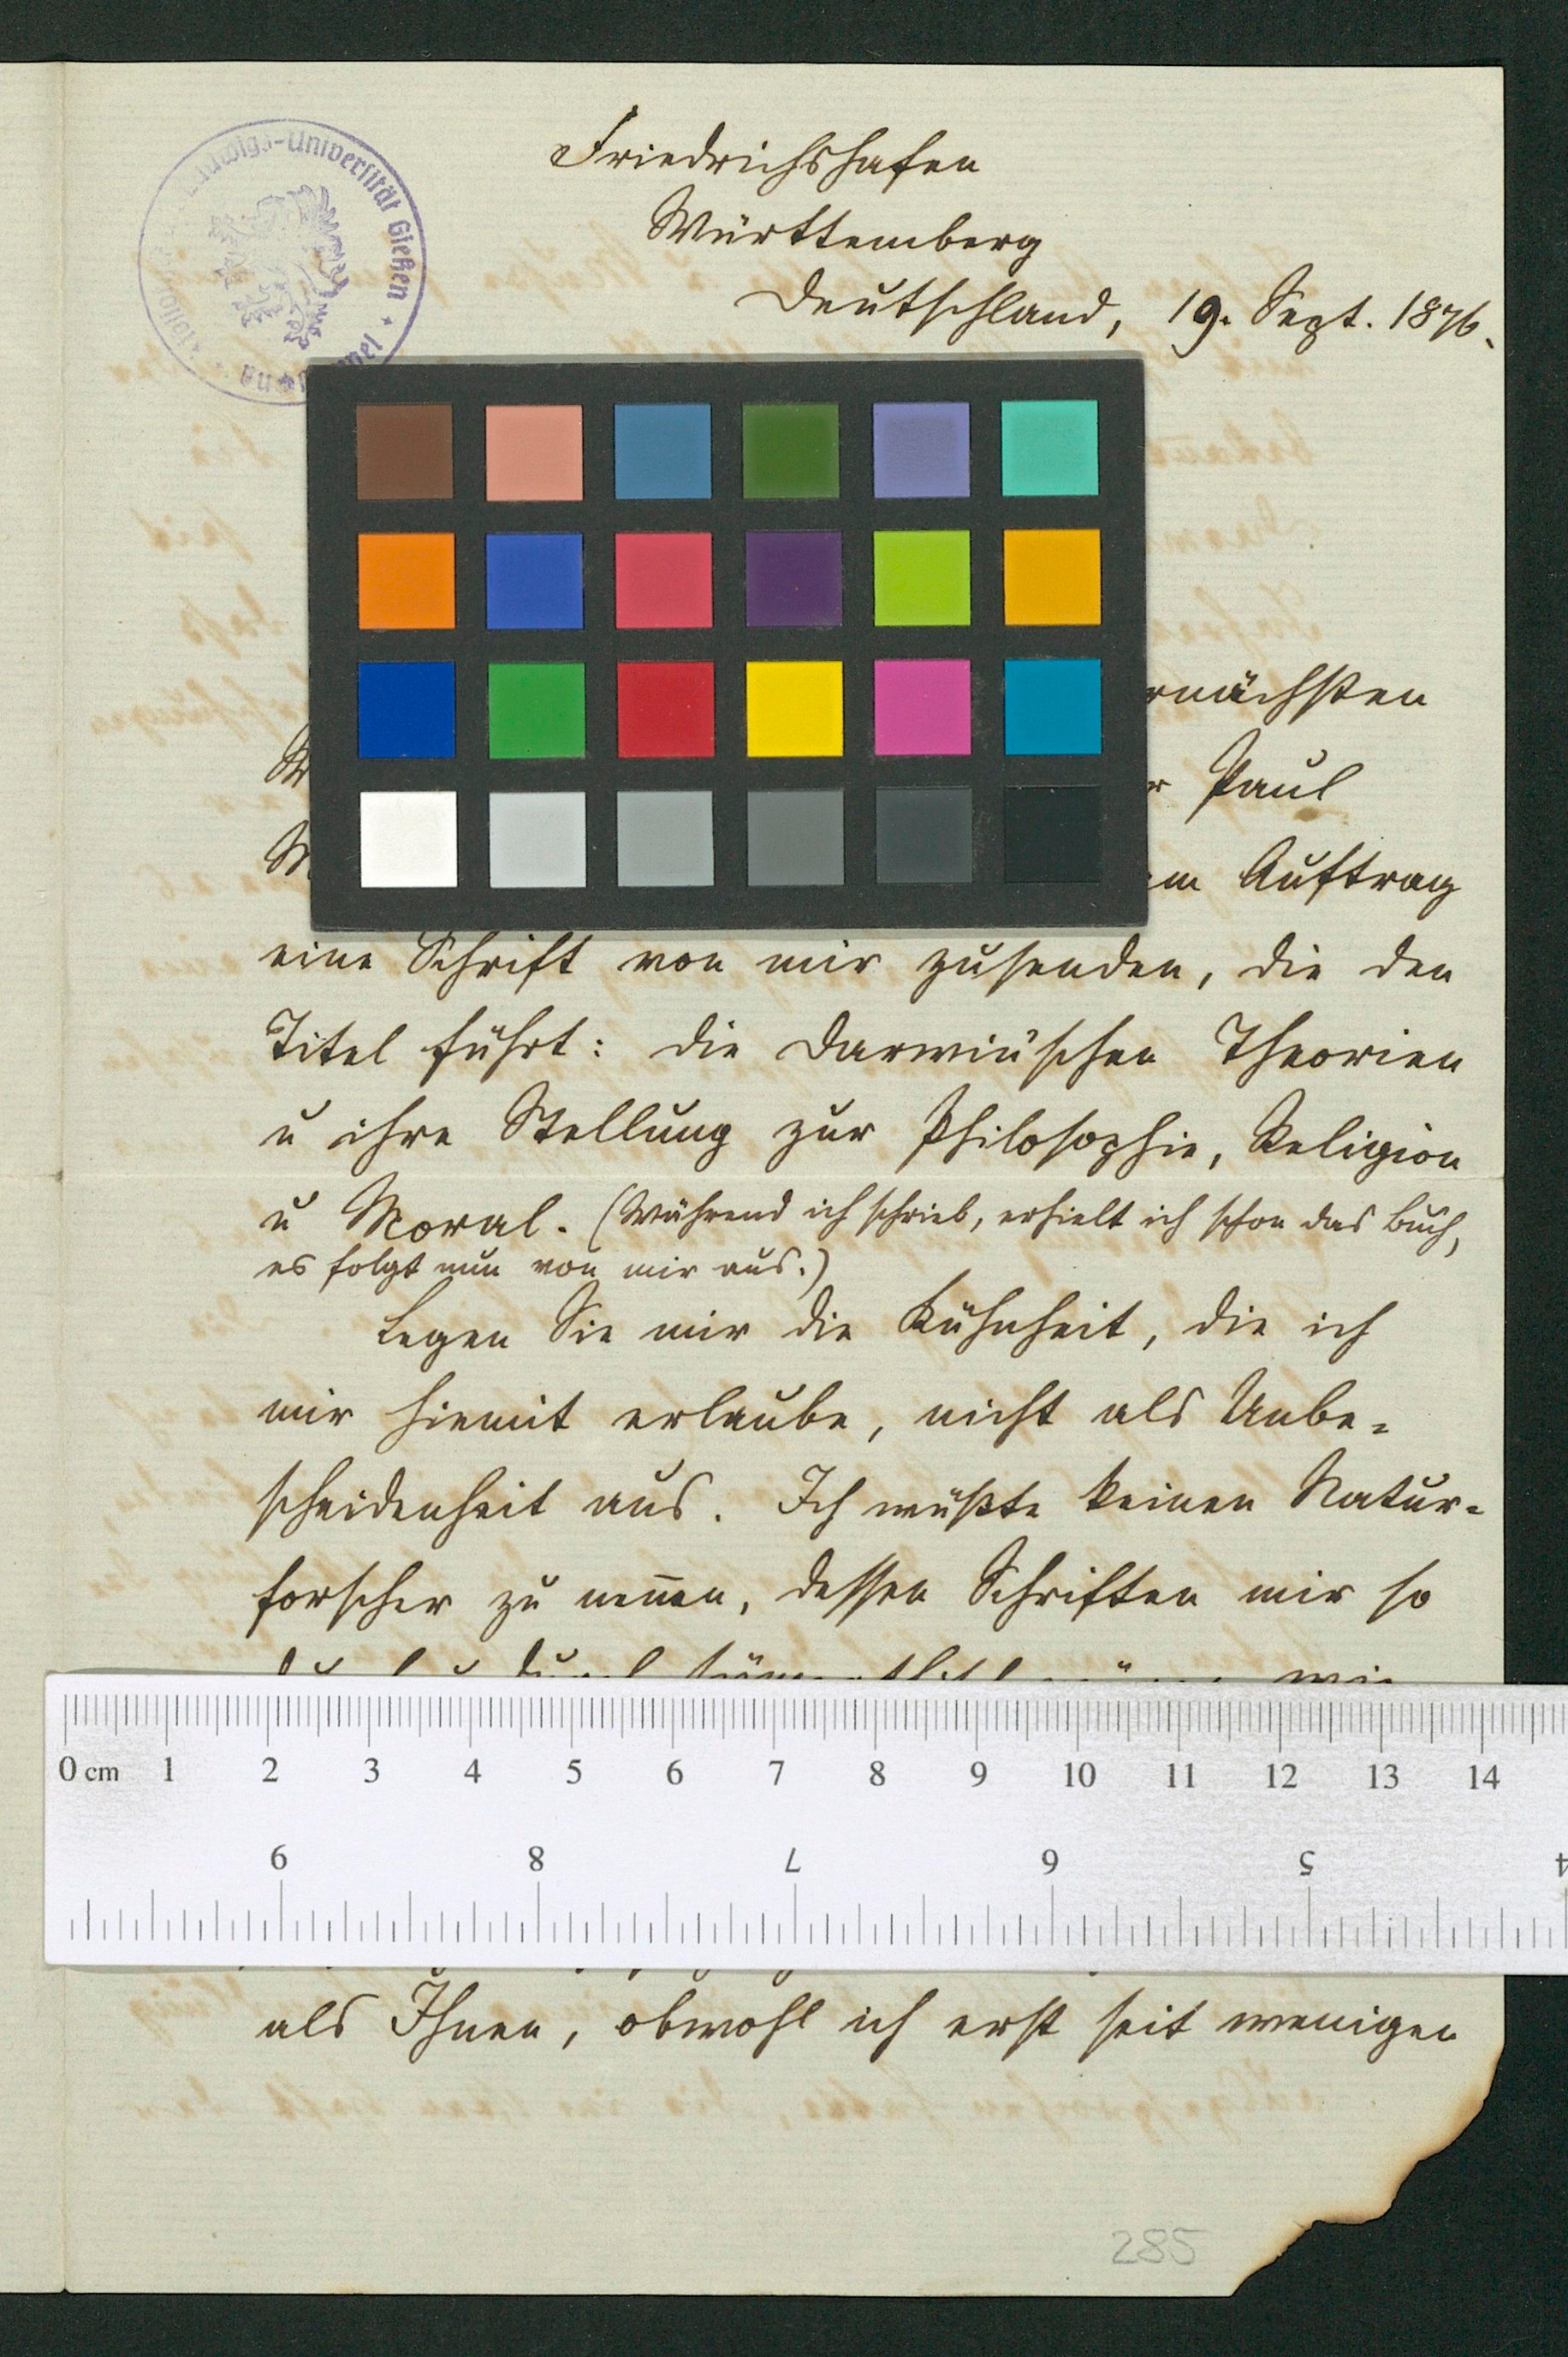 Ludwigs-Universität Gießen
Friedrichshafen
Württemberg
Deutschland, 19. Sept. 1876.
rnächsten
r Paul
m Auftrag
eine Schrift von mir zusenden, die den
Titel führt: die Darwin'schen Theorien
u ihre Stellung zur Philosophie, Religion
u Moral. (Während ich schrieb, erhielt ich schon das Buch,
es folgt nun von mir aus.)
Legen Sie mir die Kühnheit, die ich
mir hiemit erlaube, nicht als Unbe-
scheidenheit aus. Ich wüßte keinen Natur-
forscher zu nen̄en, dessen Schriften mir so
0 cm 1 2 3 4 5 6 7 8 9 10 11 12 13 14
9 8 7 6 5 4
als Ihnen, obwohl ich erst seit wenigen
285